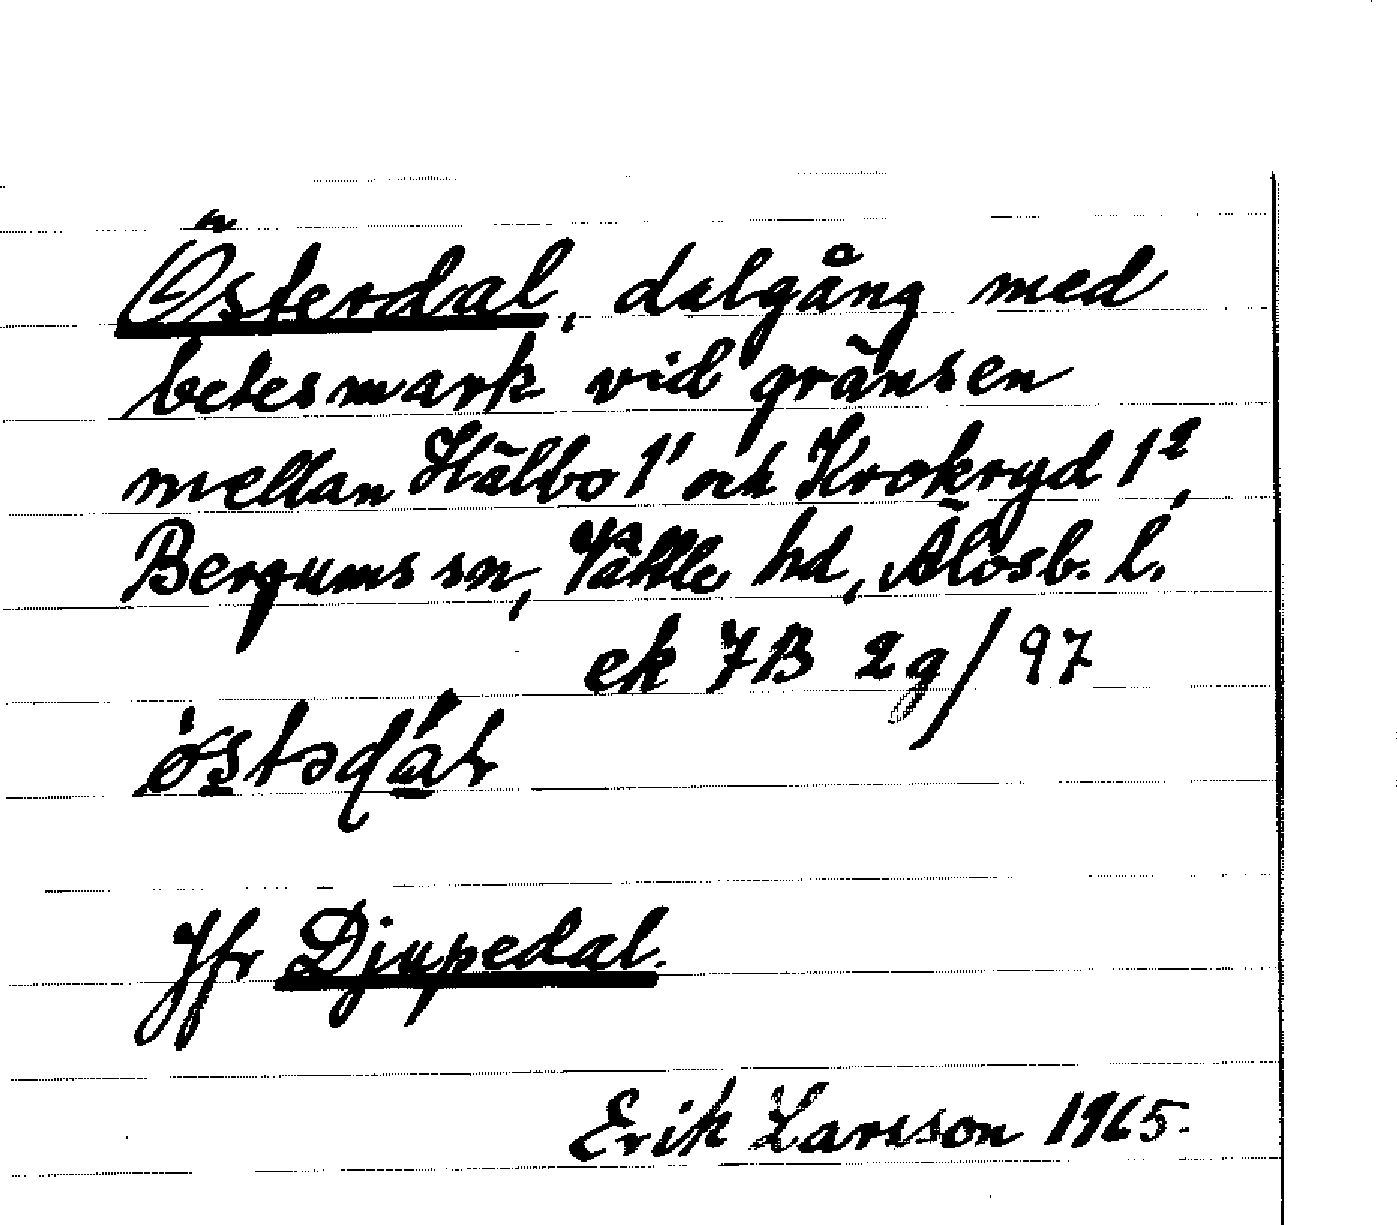 Österdal, dalgång med
betesmark vid gränsen
mellan Hälbo 1¹ och Krokryd 1²,
Bergums sn, Vättle hd, Älvsb. l.
ek 7B 2g/97
Jfr Djupedal.
Erik Larsson 1965.